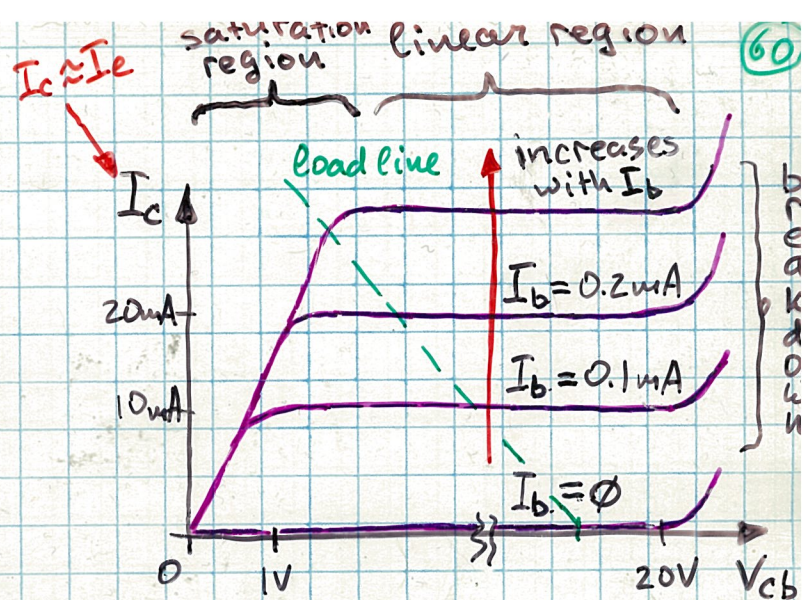 saturation
region
linear region
60
Ic≈Ie
load line
increases
with Ib
Ic
Ib=0.2mA
20mA
Ib=0.1mA
10mA
Ib=ϕ
breakdown
0
1V
20V
Vcb